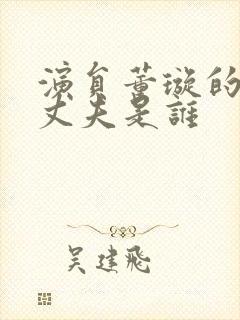 演員董璇的
丈夫是誰
吴建飛